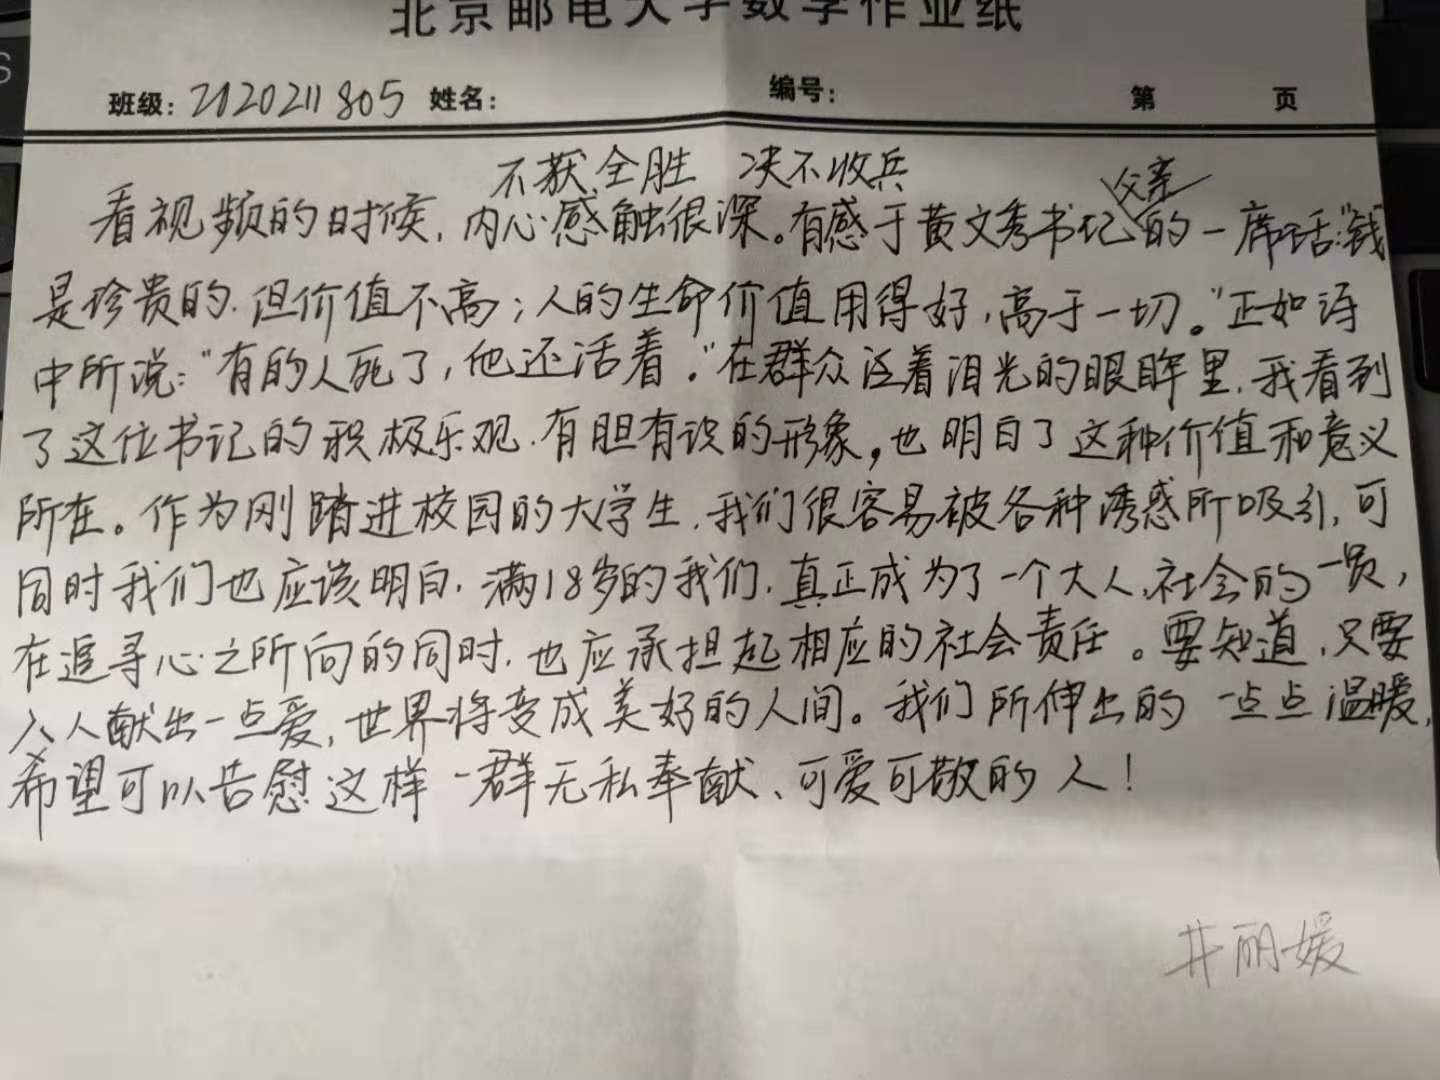 北京邮电大学数学作业纸
班级: 2020211805 姓名: 编号: 第 页
不获全胜 决不收兵
看视频的时候，内心感触很深。有感于黄文秀书记父亲的一席话:“钱
是珍贵的，但价值不高；人的生命价值用得好，高于一切。”正如诗
中所说：“有的人死了，他还活着。”在群众泛着泪光的眼眸里，我看到
了这位书记的积极乐观、有胆有识的形象，也明白了这种价值和意义
所在。作为刚踏进校园的大学生，我们很容易被各种诱惑所吸引，可
同时我们也应该明白，满18岁的我们，真正成为了一个大人，社会的一员，
在追寻心之所向的同时，也应承担起相应的社会责任。要知道，只要
人人献出一点爱，世界将变成美好的人间。我们所伸出的一点点温暖，
希望可以告慰这样一群无私奉献、可爱可敬的人！
井丽媛